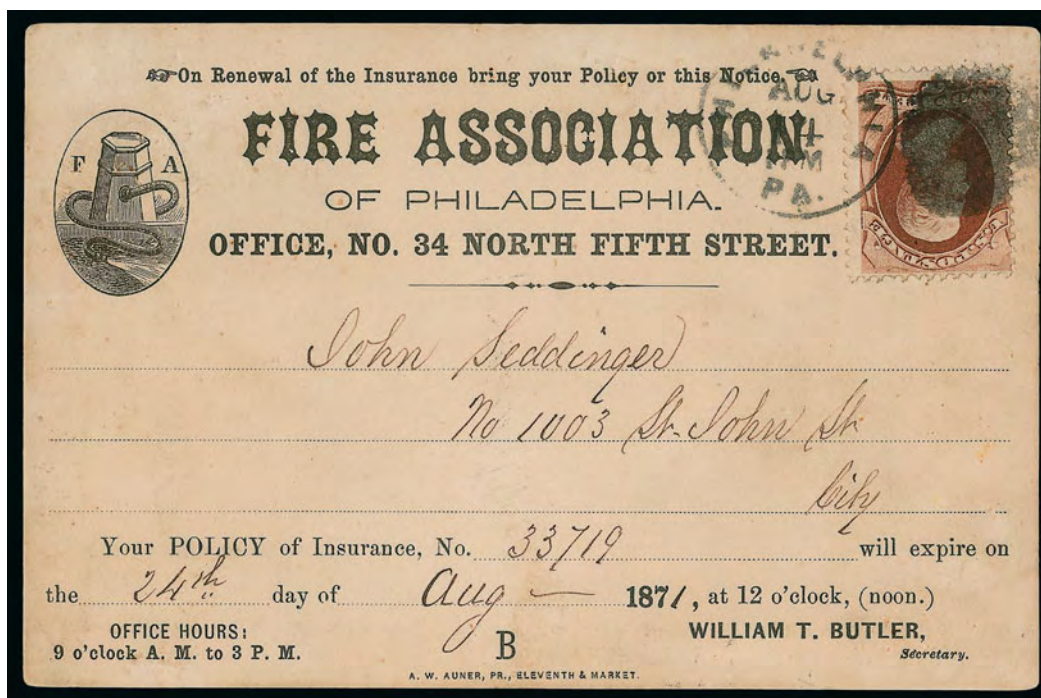 On Renewal of the Insurance bring your Policy or this Notice.
F A
FIRE ASSOCIATION
OF PHILADELPHIA.
OFFICE, NO. 34 NORTH FIFTH STREET.
AUG
PM
PA.
John Seddinger
No 1003 St. John St
City
Your POLICY of Insurance, No. 33719 will expire on
the 24th day of Aug — 1871, at 12 o'clock, (noon.)
OFFICE HOURS:
9 o'clock A. M. to 3 P. M.
B
WILLIAM T. BUTLER,
Secretary.
A. W. AUNER, PR., ELEVENTH & MARKET.